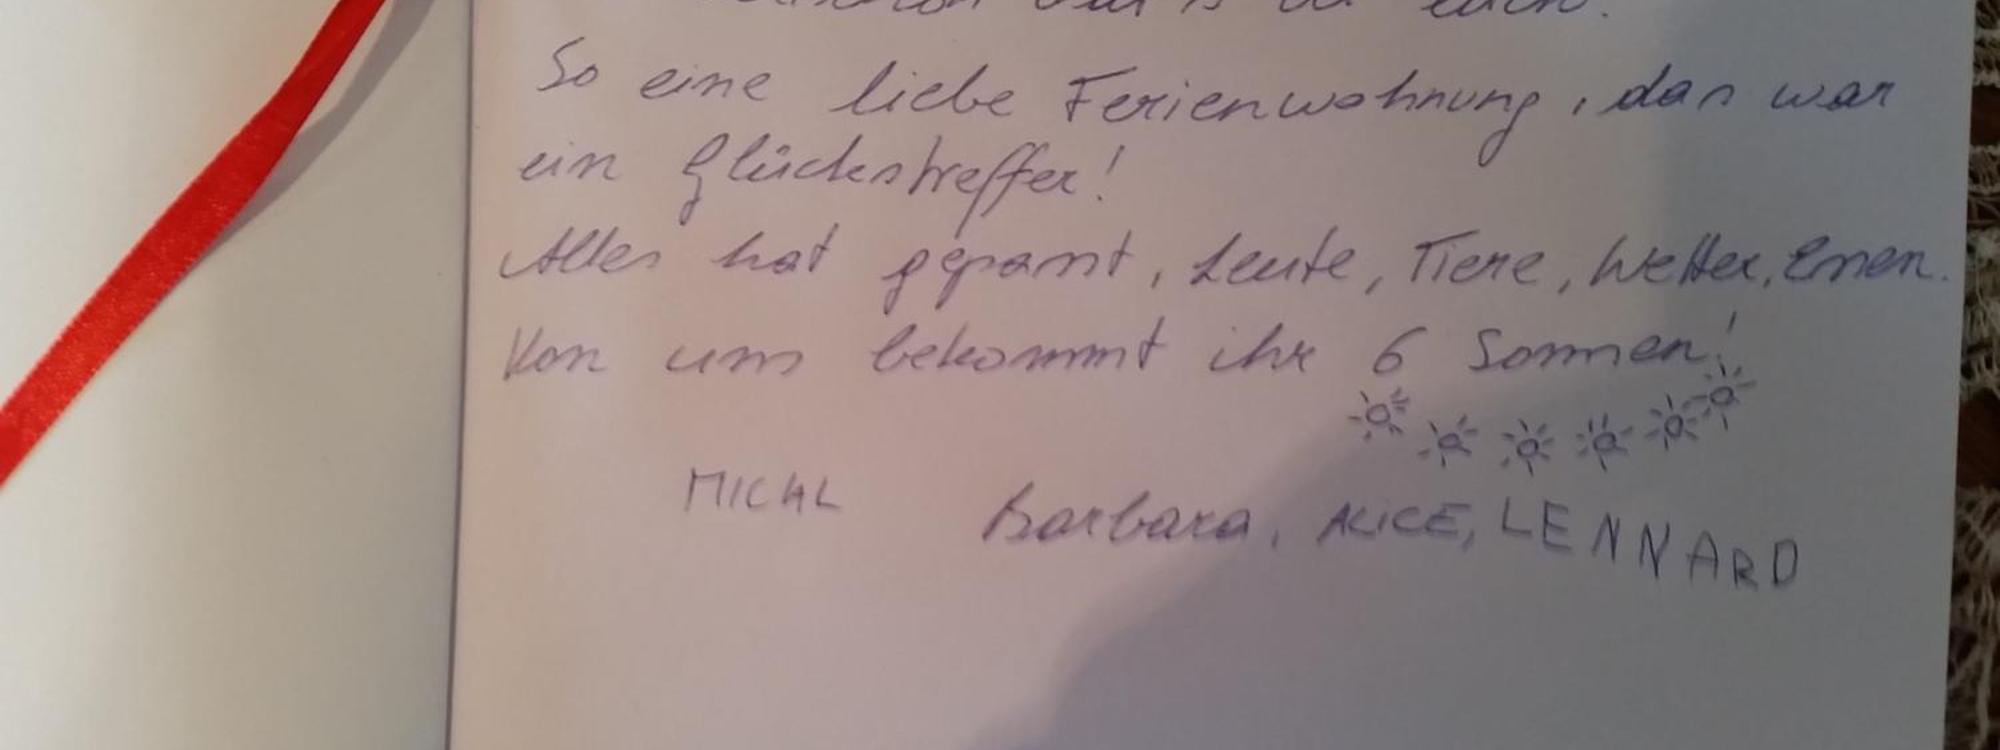 euch.
So eine liebe Ferienwohnung, das war
ein Glückstreffer!
Alles hat gepasst, Leute, Tiere, Wetter, Essen.
Von uns bekommt ihr 6 Sonnen!
MICHL Barbara, ALICE, LENNARD